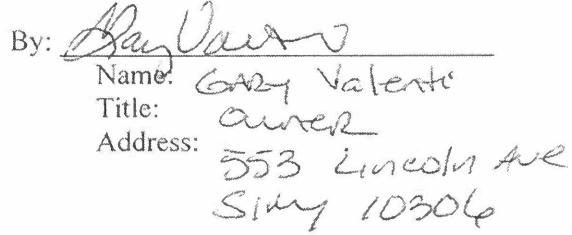 By: Gary Valenti
Name: GARY Valenti
Title: owner
Address: 553 Lincoln Ave
SINY 10306